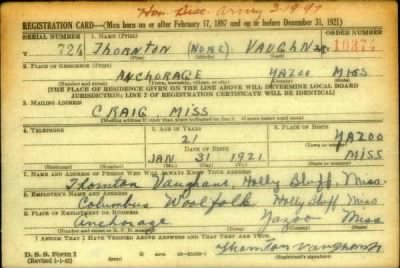 Hon Disc. Army 3-19-47
REGISTRATION CARD—(Men born on or after February 17, 1897 and on or before December 31, 1921)
SERIAL NUMBER 1. NAME (Print) ORDER NUMBER
T 724 THORNTON (NONE) VAUGHN JR. 10374
2. PLACE OF RESIDENCE (Print)
ANCHORAGE YAZOO MISS
(Number and street) (Town, township, village, or city) (County) (State)
[THE PLACE OF RESIDENCE GIVEN ON THE LINE ABOVE WILL DETERMINE LOCAL BOARD
JURISDICTION; LINE 2 OF REGISTRATION CERTIFICATE WILL BE IDENTICAL]
3. MAILING ADDRESS
CRAIG MISS
[Mailing address if other than place indicated on line 2. If same insert word same]
4. TELEPHONE 5. AGE IN YEARS 6. PLACE OF BIRTH
21 YAZOO
DATE OF BIRTH (Town or county)
JAN 31 1921 MISS
(Exchange) (Number) (Mo.) (Day) (Yr.) (State or country)
7. NAME AND ADDRESS OF PERSON WHO WILL ALWAYS KNOW YOUR ADDRESS
Thornton Vaughans, Holly Bluff, Miss.
8. EMPLOYER'S NAME AND ADDRESS
Columbus Woolfolk Holly Bluff Miss
9. PLACE OF EMPLOYMENT OR BUSINESS
Anchorage Yazoo Miss
(Number and street or R. F. D. number) (Town) (County) (State)
I AFFIRM THAT I HAVE VERIFIED ABOVE ANSWERS AND THAT THEY ARE TRUE.
D. S. S. Form 1
(Revised 1-1-42) (over)
Thornton Vaughn Jr
(Registrant's signature)